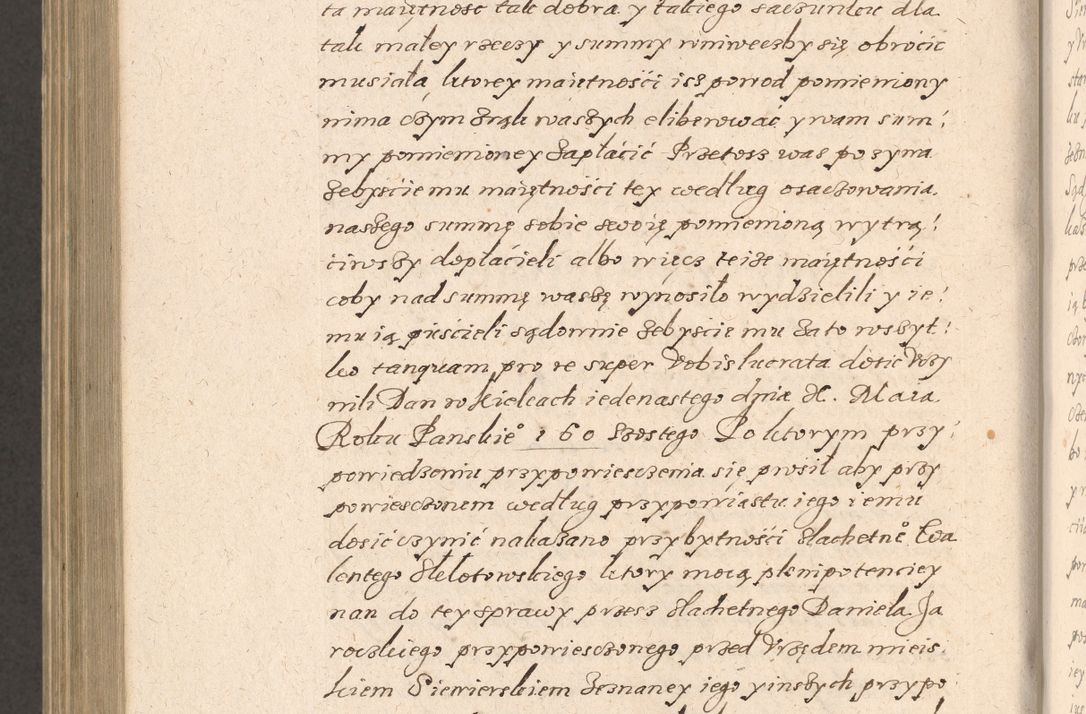 ta maiętnosc tak dobra y takiego saczunku dla
tak małey rzeczy y summy wniweczby się obrocic
musiała, ktorey maiętnośći isz powod pomieniony
nima czym z rąk waszych eliberować y wam sum
my pomienioney zapłacić Przetosz was pozyna
żebyście mu maiętności tey według osaczowania
naszego summę sobie swoię pomienioną wytrą
ciwszy dopłacieli albo więcz teisz maiętności
coby nad summę waszę wynosiło wydzielili y ie
mu ią puścieli sądownie żebyście mu za to wszyt
ko tanquam pro re super vobis lucrata dosic vczy
nili Dan w Kielcach iedenastego dnia X. Maia
Roku Panskie° 160 szostego Po ktorym przy
powiedzeniu przypowiesczenia się prosił aby przy
powiesczonem według przypowiastu iego iemu
dosic czynić nakazano przy bytności Slachetne° Wa
lentego Kełotowskiego ktory mocą plenipotenciey
nan do tey sprawy przesz Slachetnego Daniela Ja
roczkiego przypowiesczonego przed Vrzędem mieis
kiem Siewierskiem zeznaney iego y inszych przypo